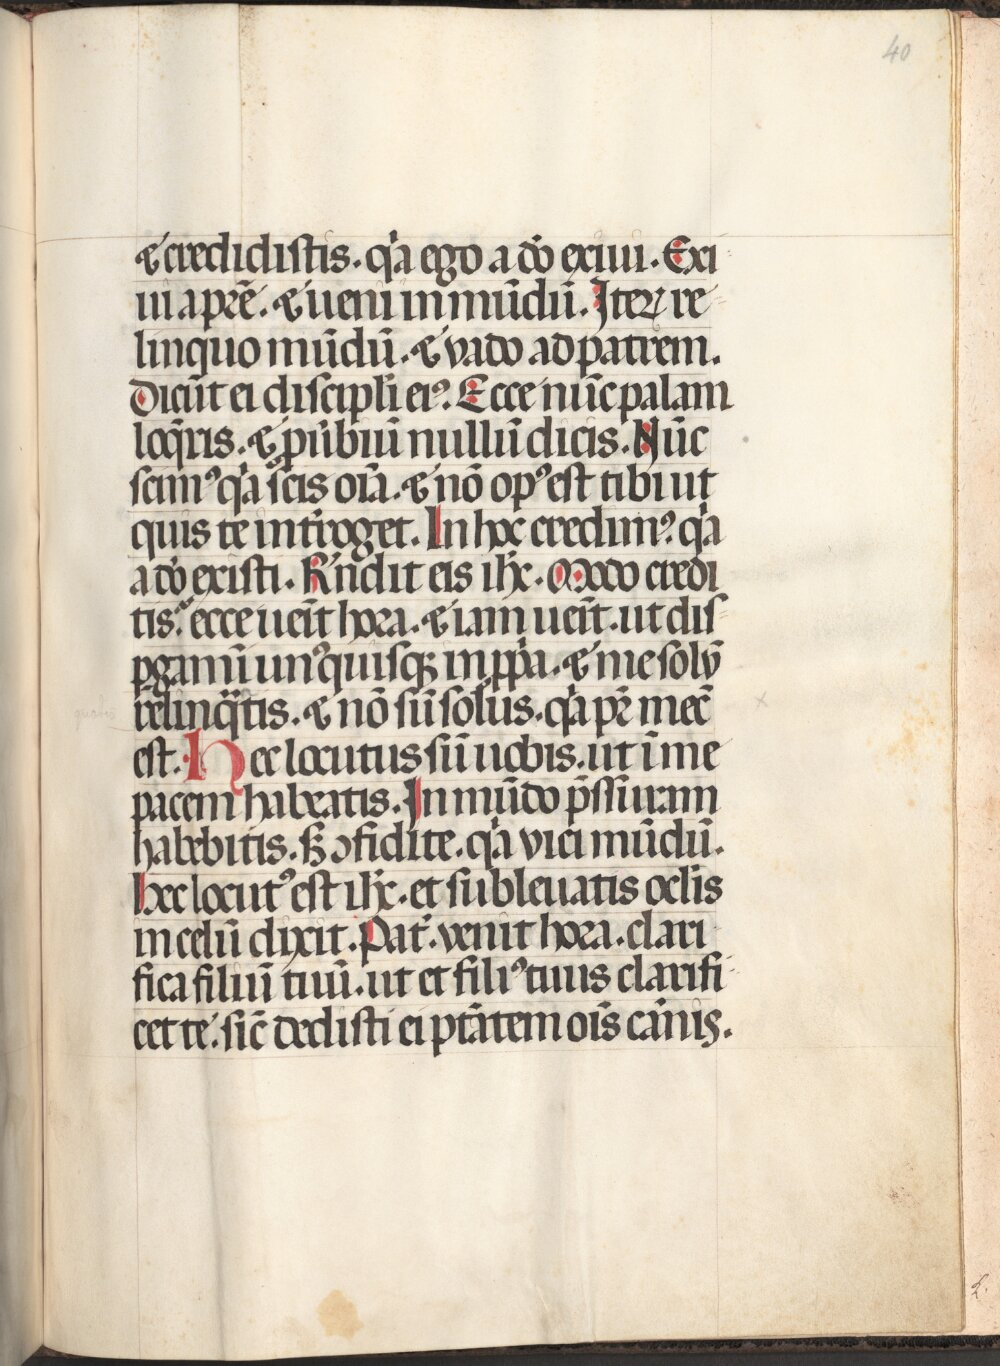 40
⁊ credidistis. qꝛa ego a dō exiui. Exi
ui a prē. ⁊ ueni in mūdū. Iterꝝ re
linquo mūdū. ⁊ vado ad patrem.
Dicūt ei discipli ei⁹. Ecce nūc palam
loq̄ris. ⁊ puͥbiū nullū dicis. Nūc
scim⁹ qͥa scis oīa. ⁊ nō op⁹ est tibi ut
quis te int̄roget. In hoc credim⁹. qͥa
a dō existi. R̄ndit eis ihc̄. Modo credi
tis. ecce uēit hora. ⁊ iam uēit. ut dis
ꝑgamī un⁹quisqꝫ in pp̱ͥa. ⁊ me solū
relinqͣtis. ⁊ nō sū solus. qͥa pr̄ mec̄
est. Hec locutus sū uobis. ut ī me
pacem habeatis. In mūdo p̄ssuram
habebitis. Sꝫ ꝯfidite. qͥa vici mūdū.
hec locut⁹ est ihc̄. et subleuatis oclis
in celū dixit. Pat̄. venit hora. clari
fica filiū tuū. ut et fili⁹ tuus clarifi
cet te. sic̄ dedisti ei ptātem oīs cārnis.